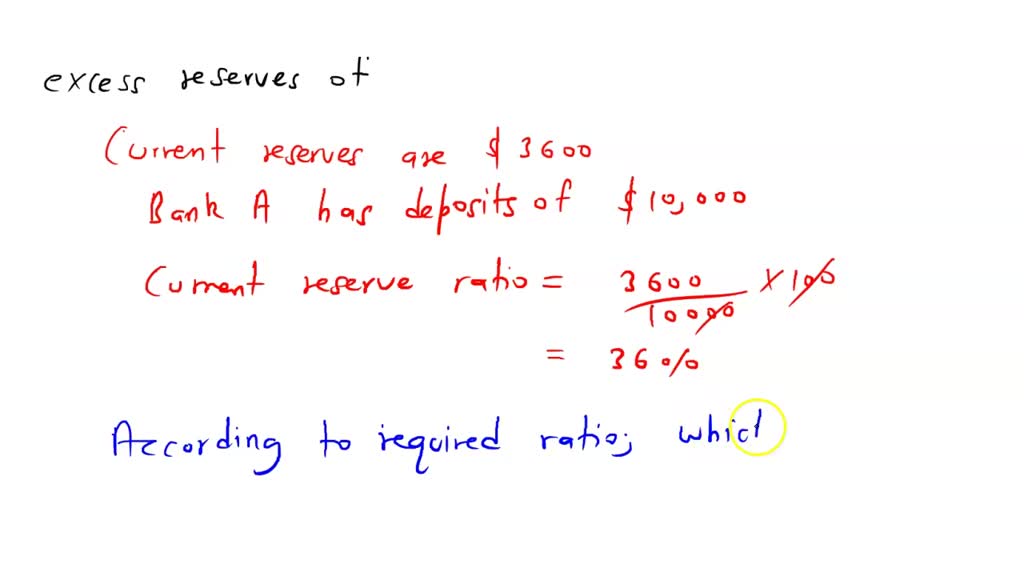 excess reserves of
Current reserves are $ 3600
Bank A has deposits of $10,000
Current reserve ratio = 3600/10000 × 100
= 36%
According to required ratio; which